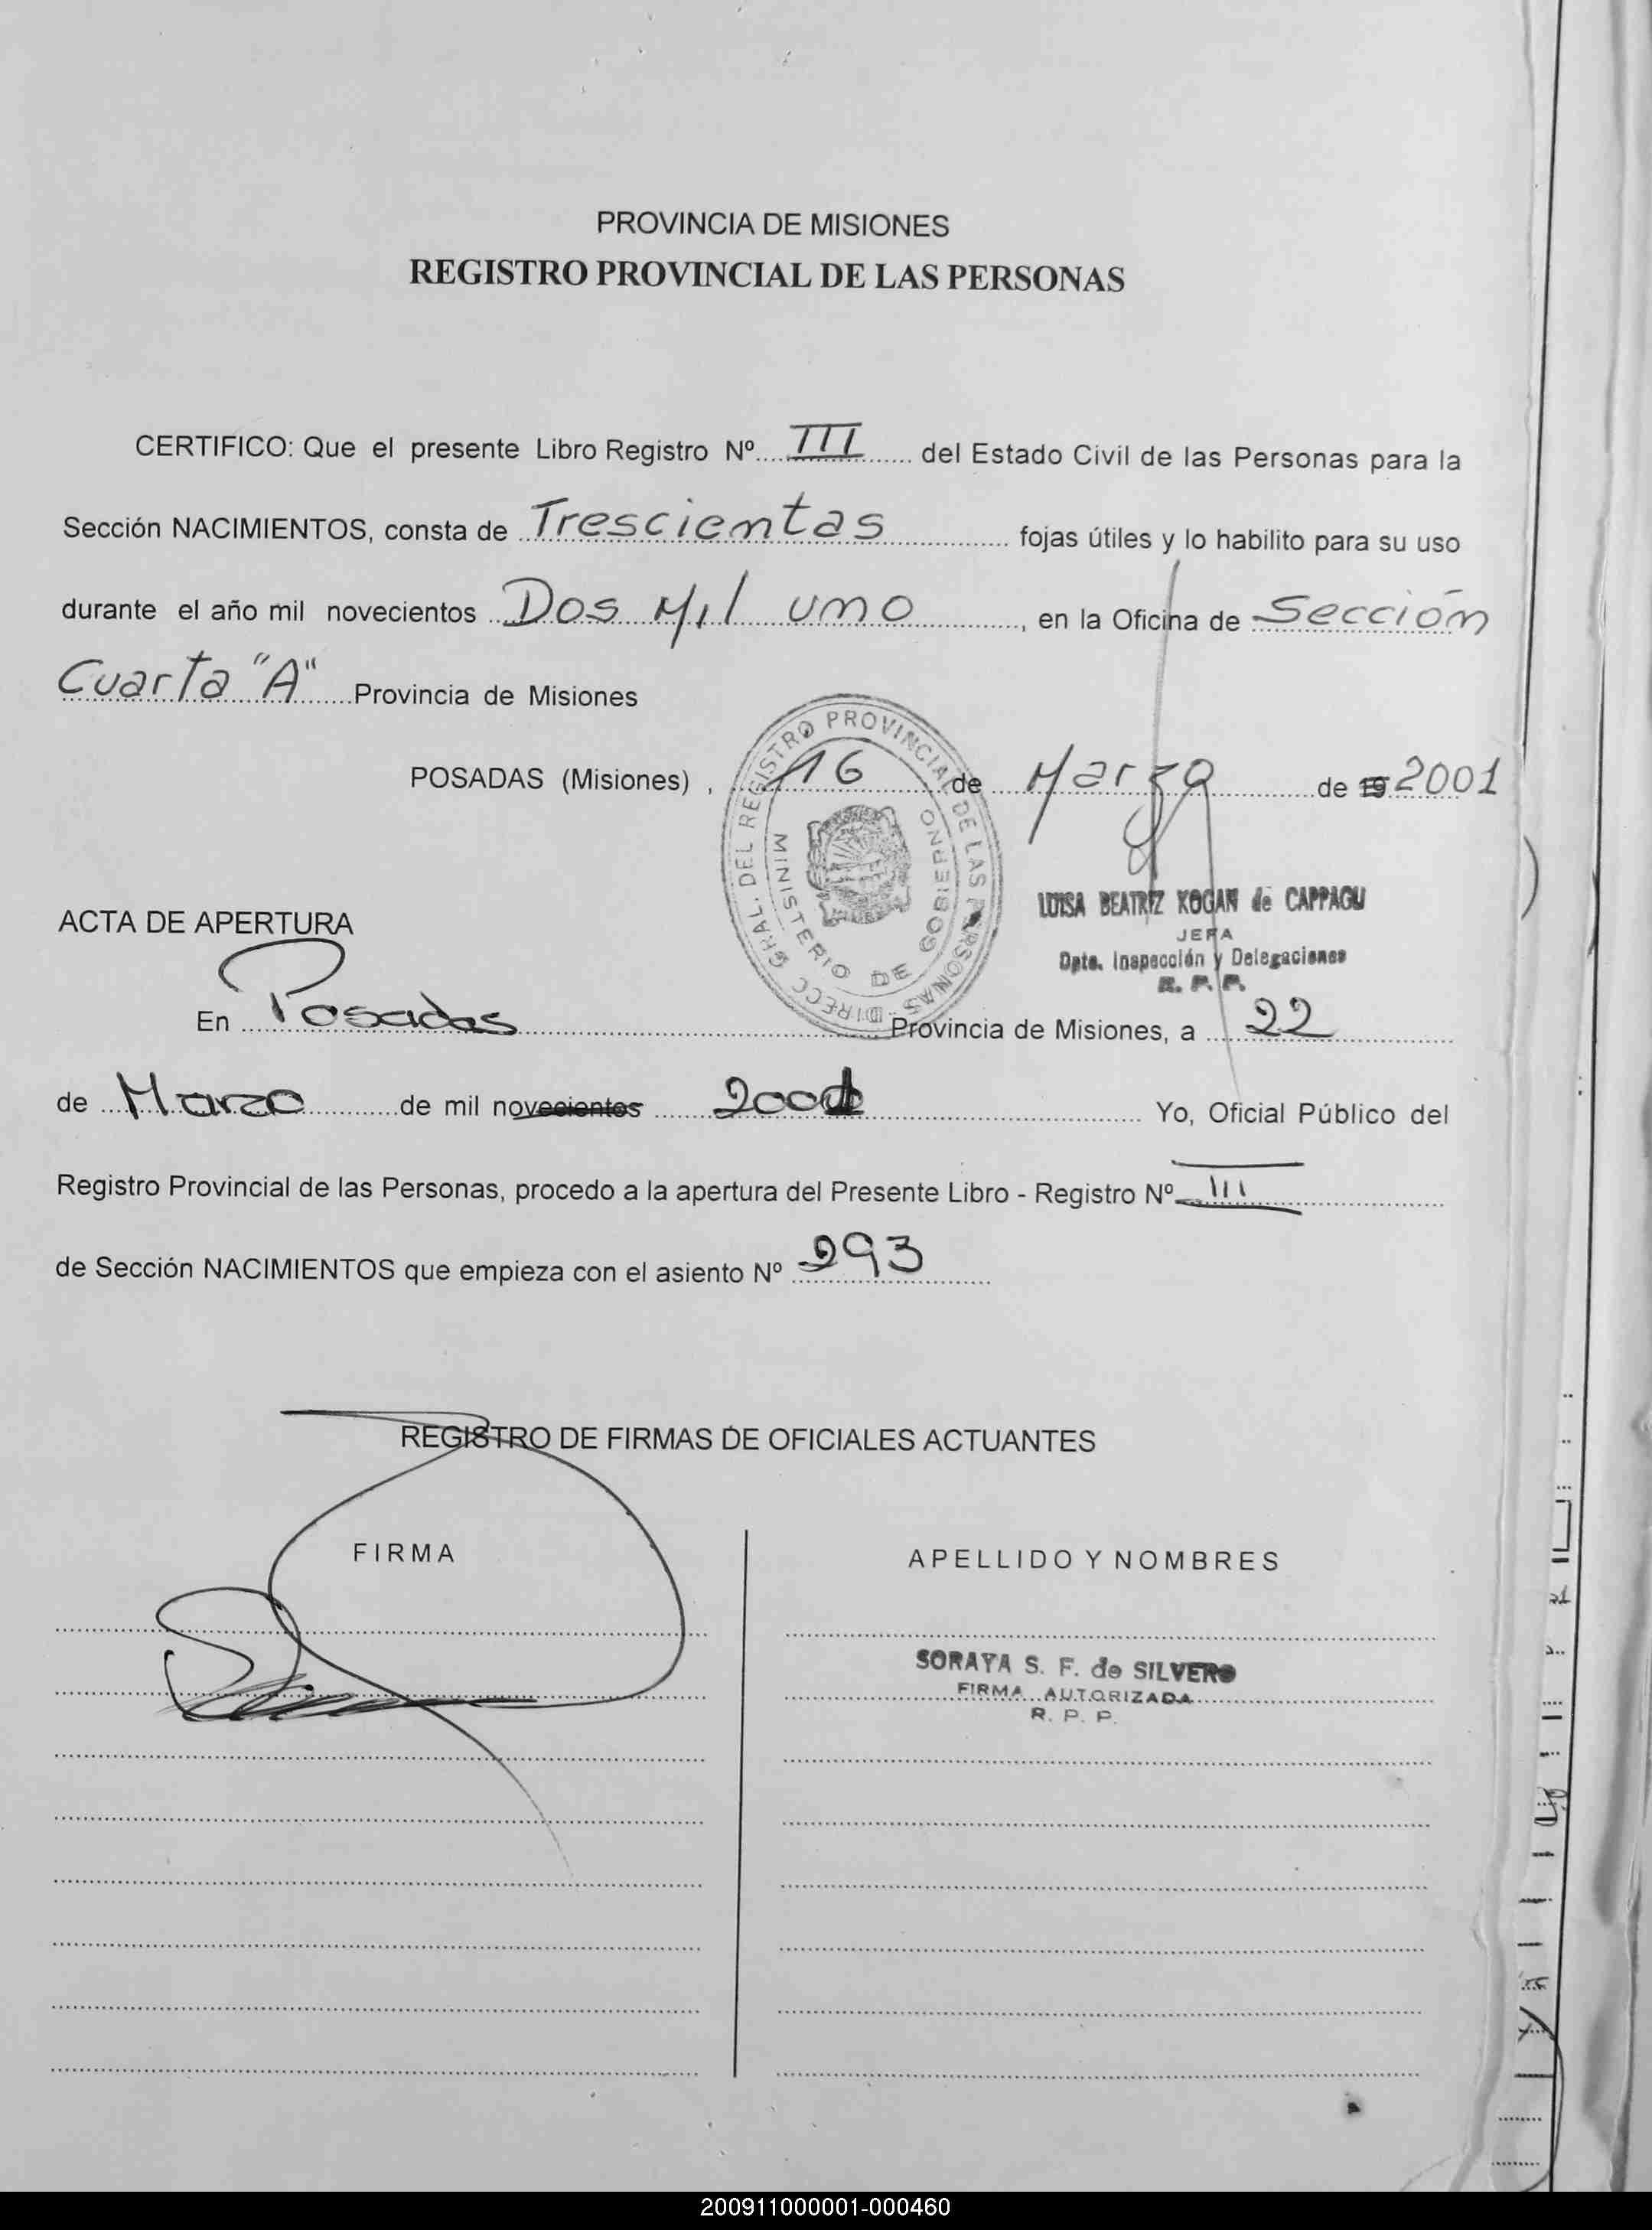 PROVINCIA DE MISIONES
REGISTRO PROVINCIAL DE LAS PERSONAS
CERTIFICO: Que el presente Libro Registro Nº III del Estado Civil de las Personas para la
Sección NACIMIENTOS, consta de Trescientas fojas útiles y lo habilito para su uso
durante el año mil novecientos Dos Mil uno, en la Oficina de Sección
Cuarta "A" Provincia de Misiones
POSADAS (Misiones), 16 de Marzo de 19 2001
DIRECC GRAL. DEL REGISTRO PROVINCIAL DE LAS PERSONAS
MINISTERIO DE GOBIERNO
LUISA BEATRIZ KOGAN de CAPPAGU
JEFA
Dpto. Inspección y Delegaciones
R. P. P.
ACTA DE APERTURA
En Posadas Provincia de Misiones, a 22
de Marzo de mil novecientos 2001 Yo, Oficial Público del
Registro Provincial de las Personas, procedo a la apertura del Presente Libro - Registro Nº III
de Sección NACIMIENTOS que empieza con el asiento Nº 293
REGISTRO DE FIRMAS DE OFICIALES ACTUANTES
FIRMA APELLIDO Y NOMBRES
SORAYA S. F. de SILVERO
FIRMA AUTORIZADA
R. P. P.
200911000001-000460